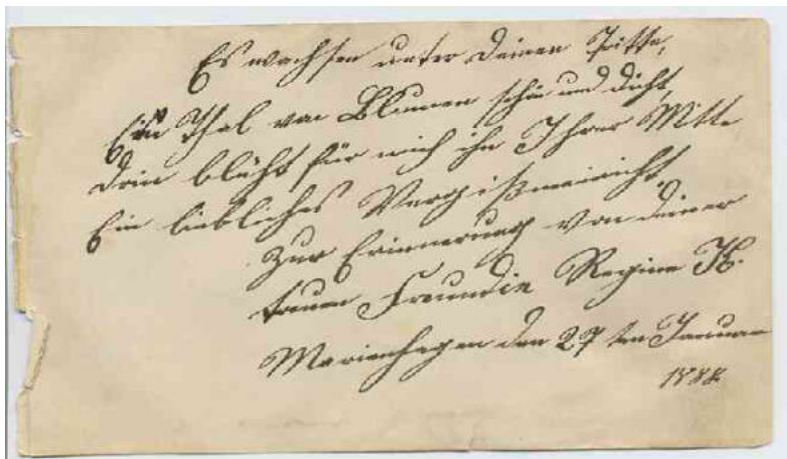 Es wachsen unter Deinen Tritte,
Ein Thal von Blumen schön und dicht,
Drin blüht für mich ihn Ihrer Mitte
Ein liebliches Vergißmeinicht,
Zur Erinnerung von deiner
treuen Freundin Regine H.
Marienhagen den 27 ten Januar
1888